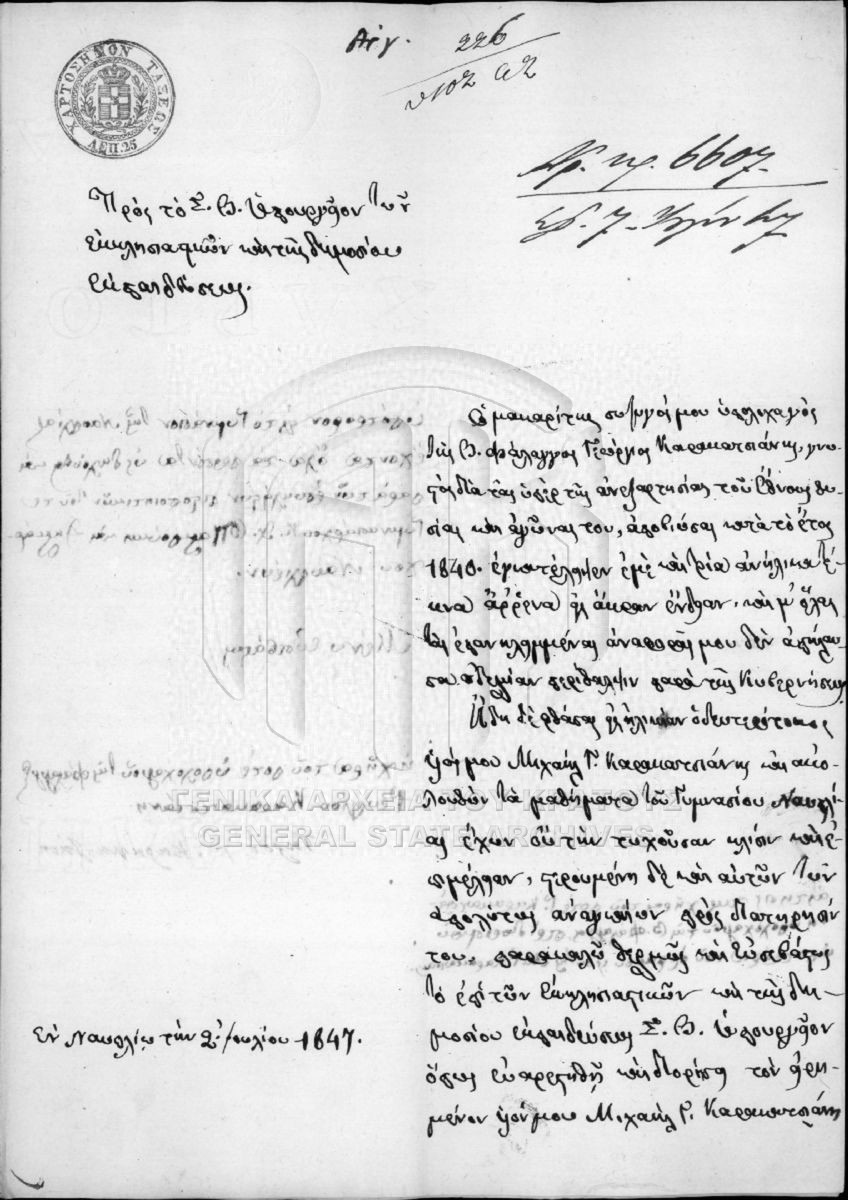 ΧΑΡΤΟΣΗΜΟΝ ΤΑΞΕΩΣ
ΛΕΠ. 25
Αίγ. 226
Αρ. π. 6607
Πρὸς τὸ Σ. Β. Ὑπουργεῖον τῶν
Ἐκκλησιαστικῶν καὶ τῆς δημοσίου
Ἐκπαιδεύσεως.
Ὁ μακαρίτης σύζυγός μου ὑπολοχαγὸς
τῆς Β. Φάλαγγος Γεώργιος Καρακατσιάνης, γνω
στὸς διὰ τὰς ὑπὲρ τῆς ἀνεξαρτησίας τοῦ Ἔθνους θυ
σίας καὶ ἀγῶνας του, ἀποβιώσας κατὰ τὸ ἔτος
1840. ἐγκατέλειψεν ἐμὲ καὶ τρία ἀνήλικα τέ
κνα ἄρρενα εἰς ἄκραν ἔνδειαν, καὶ μ' ὅλας
τὰς ἐπανειλημμένας ἀναφοράς μου δὲν ἀπήλαυ
σα οὐδεμίαν περίθαλψιν παρὰ τῆς Κυβερνήσεως
Ἤδη δὲ φθάσας εἰς ἡλικίαν ὁ δευτερότοκος
υἱός μου Μιχαὴλ Γ. Καρακατσιάνης καὶ ἀκο
λουθῶν τὰ μαθήματα τοῦ Γυμνασίου Ναυπλί
ας ἔχων οὐ τὴν τυχοῦσαν κλίσιν καὶ ἐ
πιμέλειαν, στερουμένη δὲ καὶ αὐτῶν τῶν
ἀπολύτως ἀναγκαίων πρὸς διατήρησίν
του, παρακαλῶ θερμῶς καὶ εὐσεβάστως
τὸ ἐπὶ τῶν Ἐκκλησιαστικῶν καὶ τῆς δη
μοσίου ἐκπαιδεύσεως Σ. Β. Ὑπουργεῖον
ὅπως εὐαρεστηθῇ καὶ διορίσῃ τὸν εἰρη
μένον υἱόν μου Μιχαὴλ Γ. Καρακατσιάνη
Ἐν Ναυπλίῳ τὴν 2 Ἰουλίου 1847.
ΓΕΝΙΚΑ ΑΡΧΕΙΑ ΤΟΥ ΚΡΑΤΟΥΣ
GENERAL STATE ARCHIVES